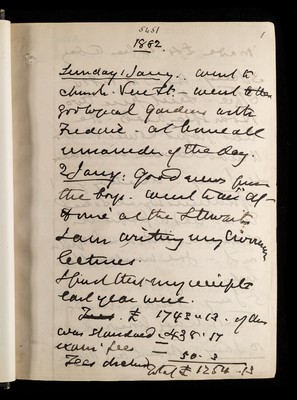 5451
1
1882.
Sunday 1 Jany. went to
church. Vere St. - went to the
Zoological Gardens with
Frederic - at home all
remainder of the day.
2 Jany: Good news from
the boys. went to an "At-
Home" at the Stewarts
I am writing my
lectures.
I find that my receipts
last year were.
£ 1742-13. of this
was standard. 438.17
exam: fees
50.3
Fees
Total £ 1254-13